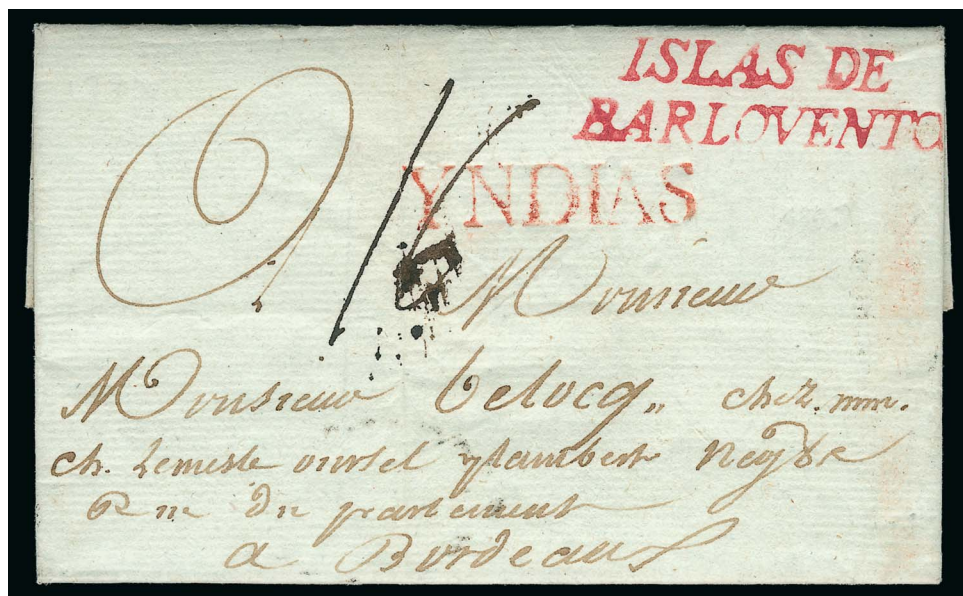 ISLAS DE
BARLOVENTO
YNDIAS
Monsieur
Monsieur Velocq,, chez. mm.
ch. Lemesle oursel Lambert
Rue du parlement
a Bordeaux